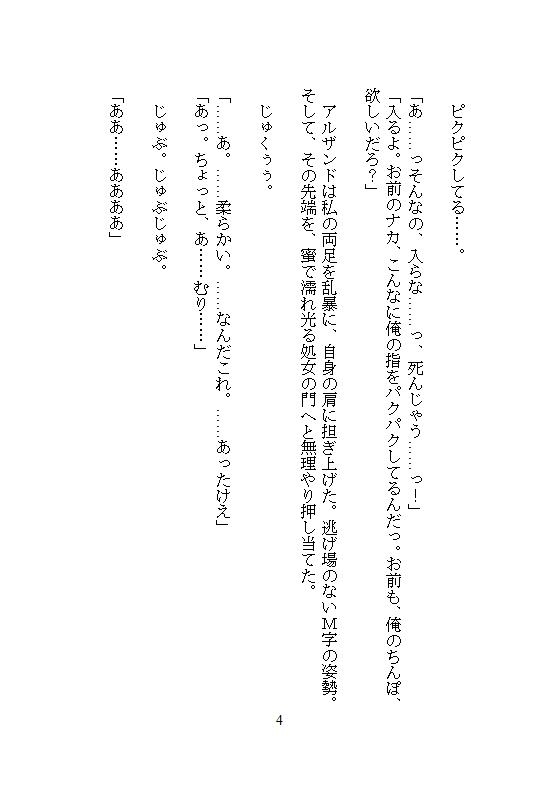 ピクピクしてる……。
「あ……っそんなの、入らな……っ、死んじゃう……っー」
「入るよ。お前のナカ、こんなに俺の指をパクパクしてるんだっ。お前も、俺のちんぽ、
欲しいだろ？」
アルザンドは私の両足を乱暴に、自身の肩に担ぎ上げた。逃げ場のないＭ字の姿勢。
そして、その先端を、蜜で濡れ光る処女の門へと無理やり押し当てた。
じゅくぅぅ。
「……あ。……柔らかい。……なんだこれ。……あったけえ」
「あっ。ちょっと、あ……むり……」
じゅぷ。じゅぷじゅぷ。
「ああ……ああああ」
4